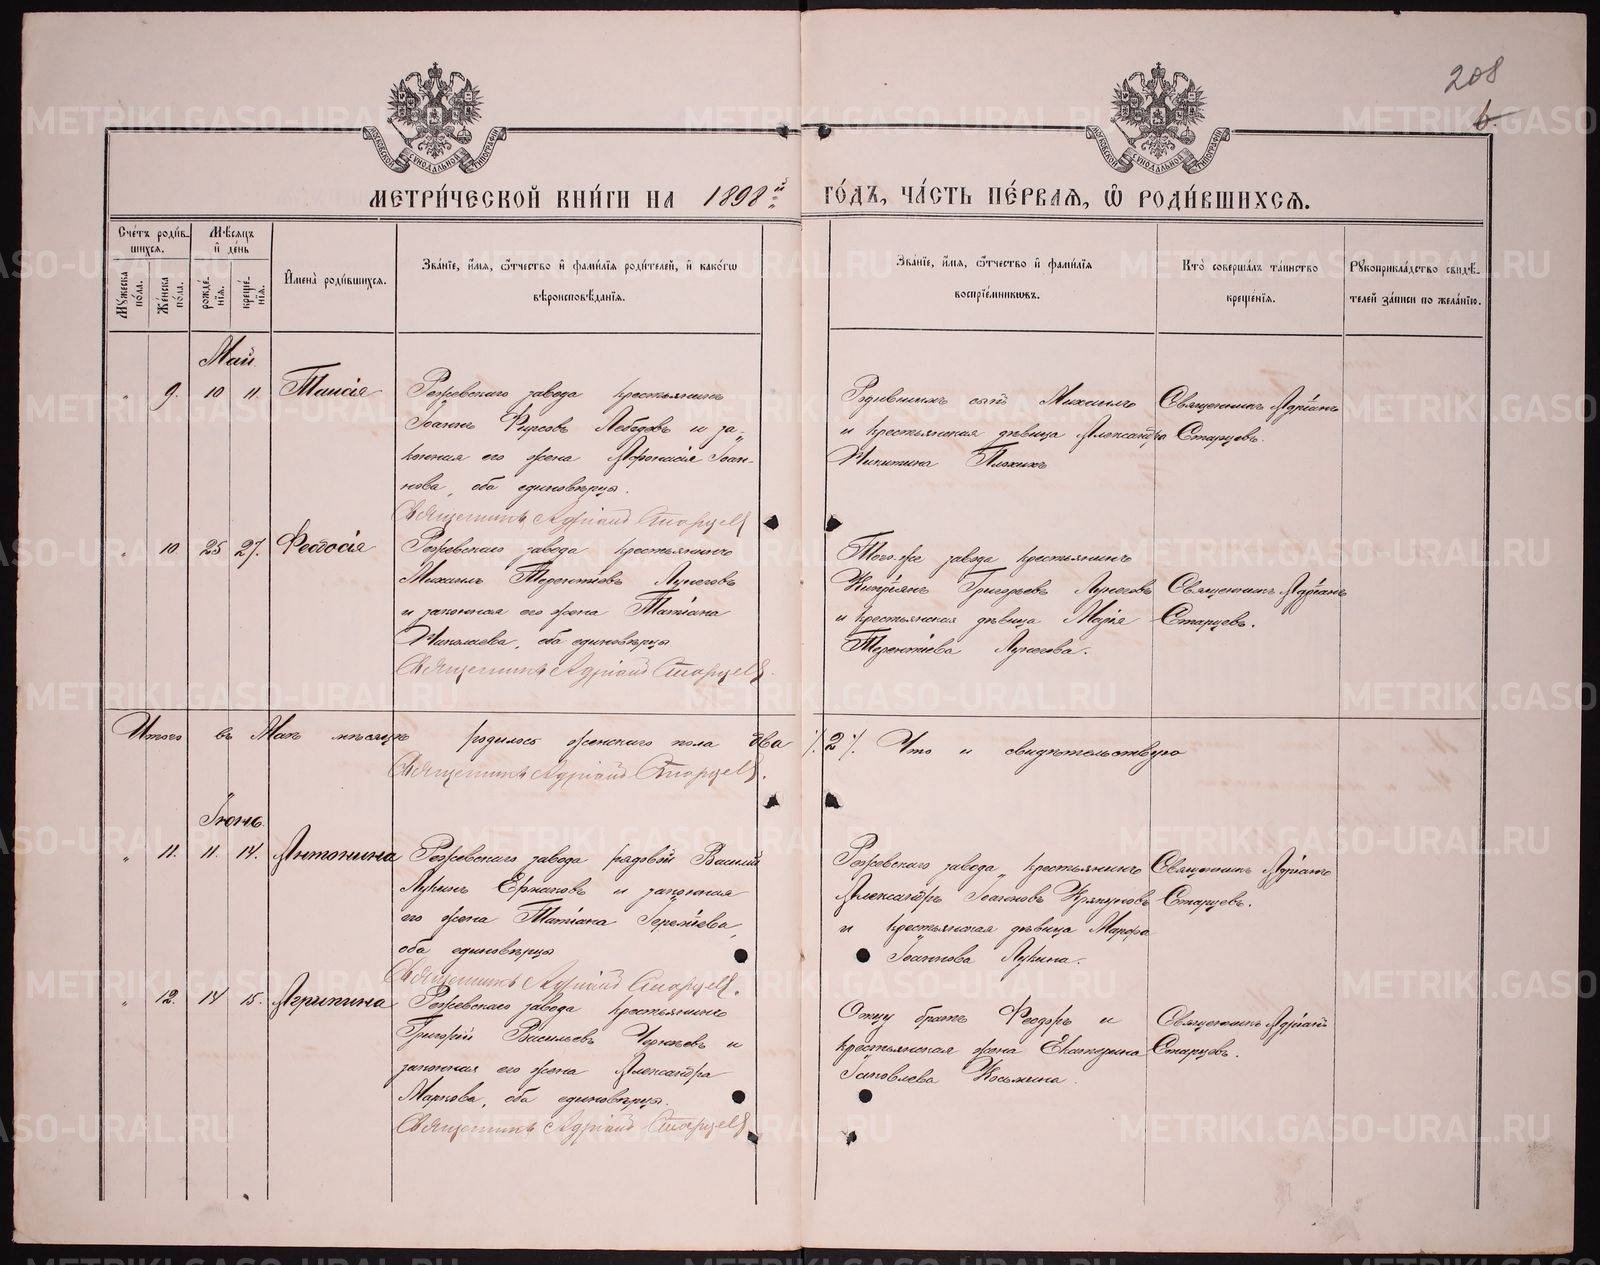 208
6.
МЕТРИ́ЧЕСКОЙ КНИ́ГИ НА 1898й ГО́ДЪ, ЧА́СТЬ ПЕ́РВАЯ, Ѡ҆ РОДИ́ВШИХСЯ.
Сче́тъ роди́в-
шихся.
Му́жеска по́ла.
Же́нска по́ла.
Мѣ́сяцъ
и҆ де́нь
рожде́-
нія.
креще́-
нія.
И҆мена̀ роди́вшихся.
Зва́ніе, и҆́мя, ѻ҆́тчество и҆ фами́лія роди́телей, и҆ како́гѡ
вѣроисповѣ́данія.
Зва́ніе, и҆́мя, ѻ҆́тчество и҆ фами́лія
воспріе́мниковъ.
Кто̀ соверша́лъ та́инство
креще́нія.
Рꙋкоприкла́дство свидѣ́-
телей за́писи по жела́нію.
Май.
" 9. 10 11. Таисія
Режевскаго завода крестьянинъ
Іоаннъ Фирсовъ Лебедевъ и за-
конная его жена Афонасія Іоан-
нова, оба единовѣрцы.
Священникъ Адріанъ Старцевъ
Родившихъ сынъ Михаилъ
и крестьянская дѣвица Александра
Никитина Плохихъ
Священникъ Адріанъ
Старцевъ.
" 10 25 27. Феодосія
Режевскаго завода крестьянинъ
Михаилъ Терентіевъ Лунеговъ
и законная его жена Татіана
Николаева, оба единовѣрцы
Священникъ Адріанъ Старцевъ.
Того-же завода крестьянинъ
Кипріянъ Григорьевъ Лунеговъ
и крестьянская дѣвица Марія
Терентіева Лунегова.
Священникъ Адріанъ
Старцевъ.
Итого въ Маѣ мѣсяцѣ родилось женскаго пола два /.2/. Что и свидѣтельствую
Священникъ Адріанъ Старцевъ.
Іюнь.
" 11. 11. 14. Антонина
Режевскаго завода рядовой Василій
Лукинъ Ермаковъ и законная
его жена Татіана Іеремѣева,
оба единовѣрцы
Священникъ Адріанъ Старцевъ.
Режевскаго завода крестьянинъ
Александръ Іоанновъ
и крестьянская дѣвица Марѳа
Іоаннова Лукина.
Священникъ Адріанъ
Старцевъ.
" 12. 14 15. Агрипина
Режевскаго завода крестьянинъ
Григорій Васильевъ и
законная его жена Александра
Маркова, оба единовѣрцы.
Священникъ Адріанъ Старцевъ
Отцу братъ Феодоръ и
крестьянская жена Екатерина
Іаковлева Косьмина.
Священникъ Адріанъ
Старцевъ.
METRIKI.GASO-URAL.RU